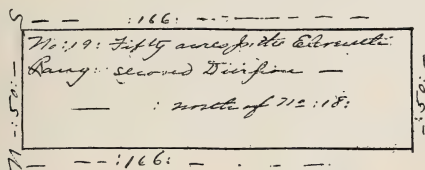 :166:
No: 19: Fifty acres in the Eleventh
Rang: second Division —
— : north of No :18:
:50:
:50:
:166: